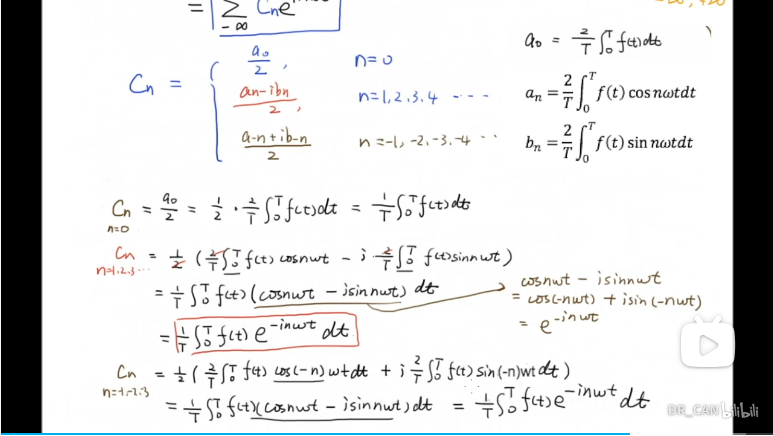 = ∑ Cn e
-∞
a₀ = 2/T ∫₀ᵀ f(t)dt
Cn = { a₀/2, n=0
an-ibn/2, n=1,2,3,4 ----
a-n+ib-n/2 n=-1,-2,-3,-4 ··
aₙ = 2/T ∫₀ᵀ f(t) cos nωtdt
bₙ = 2/T ∫₀ᵀ f(t) sin nωtdt
Cn = a₀/2 = 1/2 · 2/T ∫₀ᵀ f(t)dt = 1/T ∫₀ᵀ f(t)dt
n=0
Cn = 1/2 (2/T ∫₀ᵀ f(t) cosnωt - i · 2/T ∫₀ᵀ f(t)sinnωt)
n=1,2,3···
= 1/T ∫₀ᵀ f(t) (cosnωt - isinnωt) dt
= 1/T ∫₀ᵀ f(t) e^-inωt dt
cosnωt - isinnωt
= cos(-nωt) + isin(-nωt)
= e^-inωt
Cn = 1/2 (2/T ∫₀ᵀ f(t) cos(-n)ωtdt + i 2/T ∫₀ᵀ f(t) sin(-n)ωt dt)
n=-1,-2,-3
= 1/T ∫₀ᵀ f(t)(cosnωt - isinnωt)dt = 1/T ∫₀ᵀ f(t)e^-inωt dt
DR_CAN bilibili